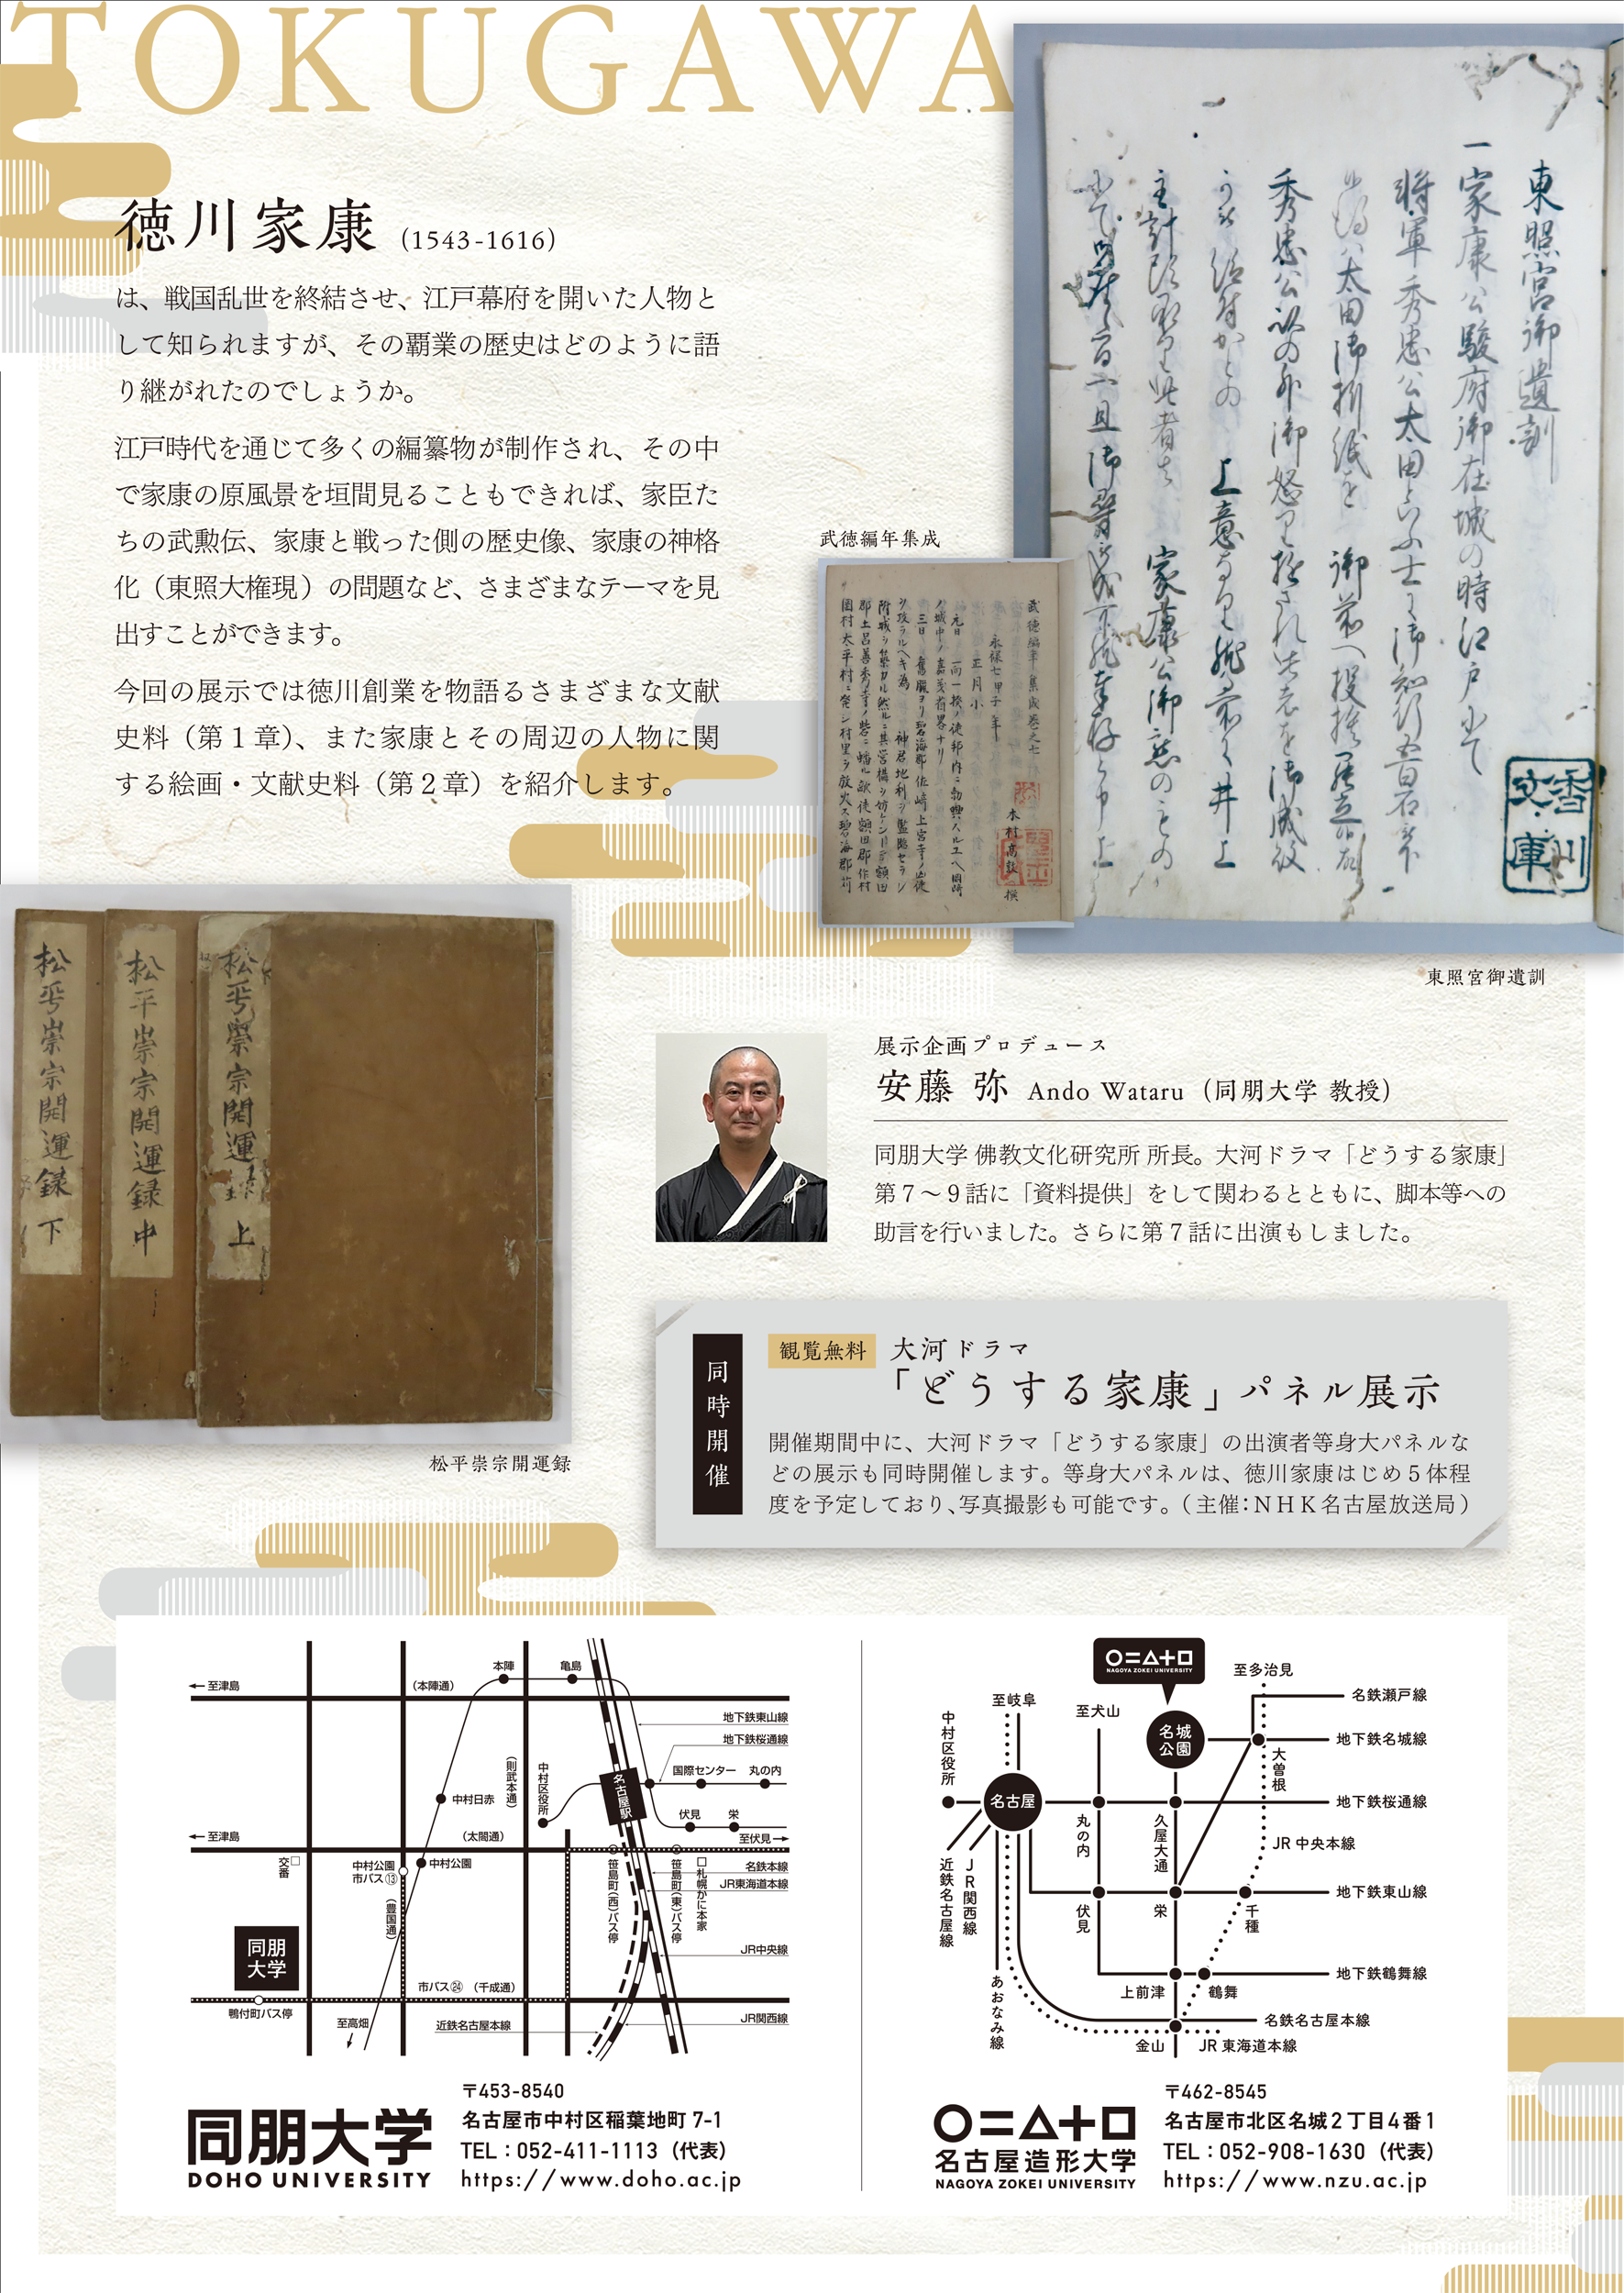 TOKUGAWA
徳川家康 (1543-1616)
は、戦国乱世を終結させ、江戸幕府を開いた人物と
して知られますが、その覇業の歴史はどのように語
り継がれたのでしょうか。
江戸時代を通じて多くの編纂物が制作され、その中
で家康の原風景を垣間見ることもできれば、家臣た
ちの武勲伝、家康と戦った側の歴史像、家康の神格
化（東照大権現）の問題など、さまざまなテーマを見
出すことができます。
今回の展示では徳川創業を物語るさまざまな文献
史料（第１章）、また家康とその周辺の人物に関
する絵画・文献史料（第２章）を紹介します。
東照宮御遺訓
武徳編年集成
東照宮御遺訓
松平崇宗開運録 上
松平崇宗開運録 中
松平崇宗開運録 下
松平崇宗開運録
展示企画プロデュース
安藤 弥 Ando Wataru（同朋大学 教授）
同朋大学 佛教文化研究所 所長。大河ドラマ「どうする家康」
第７～９話に「資料提供」をして関わるとともに、脚本等への
助言を行いました。さらに第７話に出演もしました。
同時開催
観覧無料 大河ドラマ
「どうする家康」パネル展示
開催期間中に、大河ドラマ「どうする家康」の出演者等身大パネルな
どの展示も同時開催します。等身大パネルは、徳川家康はじめ５体程
度を予定しており、写真撮影も可能です。（主催：ＮＨＫ名古屋放送局）
←至津島
（本陣通）
本陣
亀島
地下鉄東山線
地下鉄桜通線
（則武本通）
中村区役所
名古屋駅
国際センター
丸の内
中村日赤
伏見
栄
←至津島
（太閤通）
至伏見→
交番
中村公園
市バス⑬
中村公園
（豊国通）
笹島町（西）バス停
笹島町（東）バス停
札幌かに本家
名鉄本線
JR東海道本線
JR中央線
同朋
大学
市バス㉔
（千成通）
鴨付町バス停
至高畑
近鉄名古屋本線
JR関西線
同朋大学
DOHO UNIVERSITY
〒453-8540
名古屋市中村区稲葉地町 7-1
TEL：052-411-1113（代表）
https://www.doho.ac.jp
NAGOYA ZOKEI UNIVERSITY
至多治見
至岐阜
至犬山
中村区役所
名城
公園
名鉄瀬戸線
地下鉄名城線
大曽根
名古屋
地下鉄桜通線
丸の内
久屋大通
JR 中央本線
近鉄名古屋線
JR関西線
地下鉄東山線
伏見
栄
千種
あおなみ線
地下鉄鶴舞線
上前津
鶴舞
名鉄名古屋本線
金山
JR 東海道本線
名古屋造形大学
NAGOYA ZOKEI UNIVERSITY
〒462-8545
名古屋市北区名城２丁目４番１
TEL：052-908-1630（代表）
https://www.nzu.ac.jp